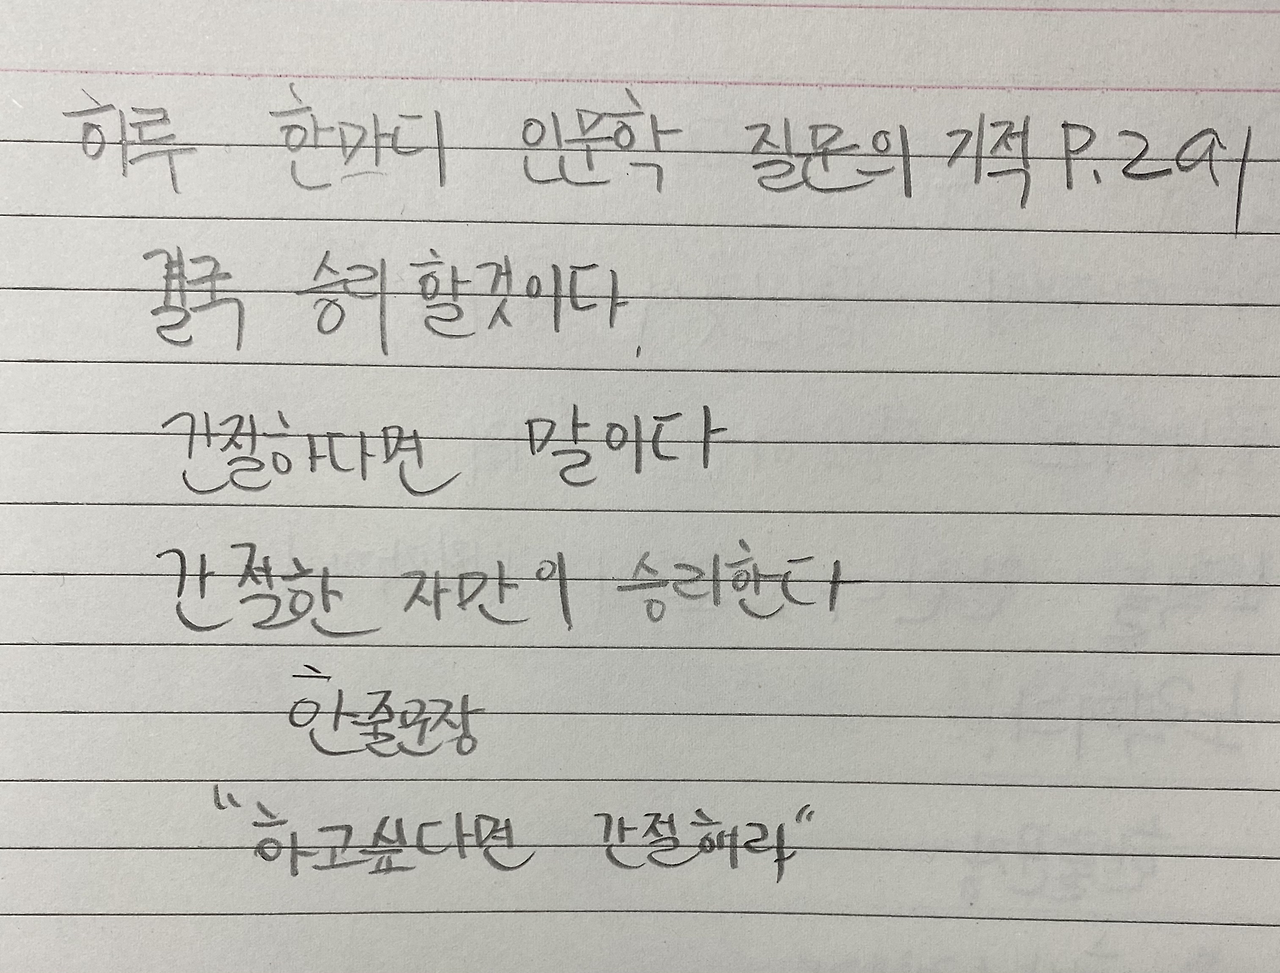 하루 한마디 인문학 질문의 기적 P.291
결국 승리할것이다.
간절하다면 말이다
간절한 자만이 승리한다
한줄문장
"하고싶다면 간절해라"